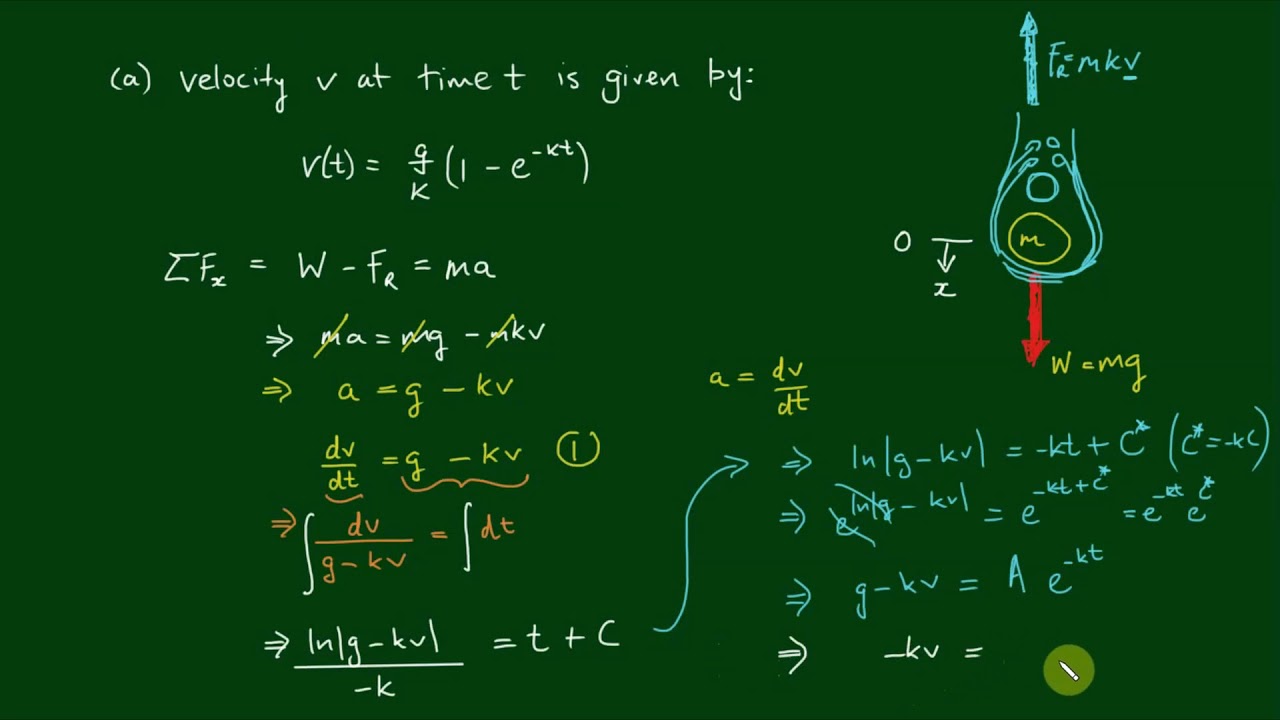 (a) velocity v at time t is given by:
v(t) = g/k (1 − e^{−kt})
ΣF_x = W − F_R = ma
⇒ ma = mg − mkv
⇒ a = g − kv
dv/dt = g − kv ①
⇒ ∫ dv/(g − kv) = ∫ dt
⇒ ln|g − kv|/−k = t + C
F_R = mkv
m
0
x
W = mg
a = dv/dt
⇒ ln|g − kv| = −kt + C* (C* = −kC)
⇒ e^{ln|g − kv|} = e^{−kt + C*} = e^{−kt} e^{C*}
⇒ g − kv = A e^{−kt}
⇒ −kv =